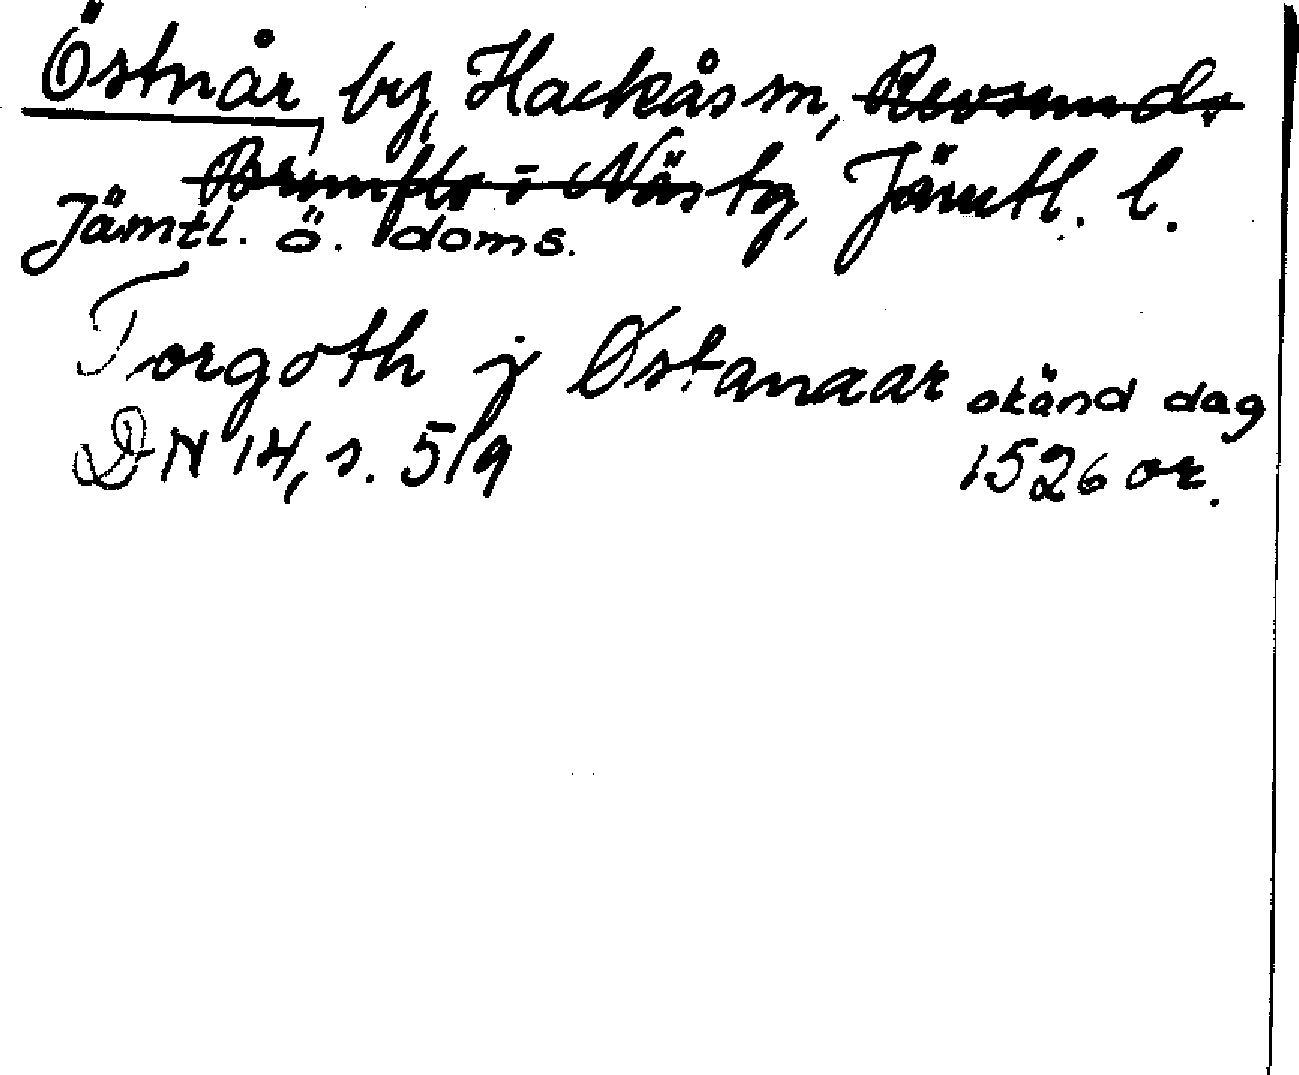 Östnår, by, Hackås sn, Revsunds
Brunflo o Näs tg, Jämtl. l.
Jämtl. ö. doms.
Torgoth j Østanaar okänd dag
DN 14, s. 519 1526 or.